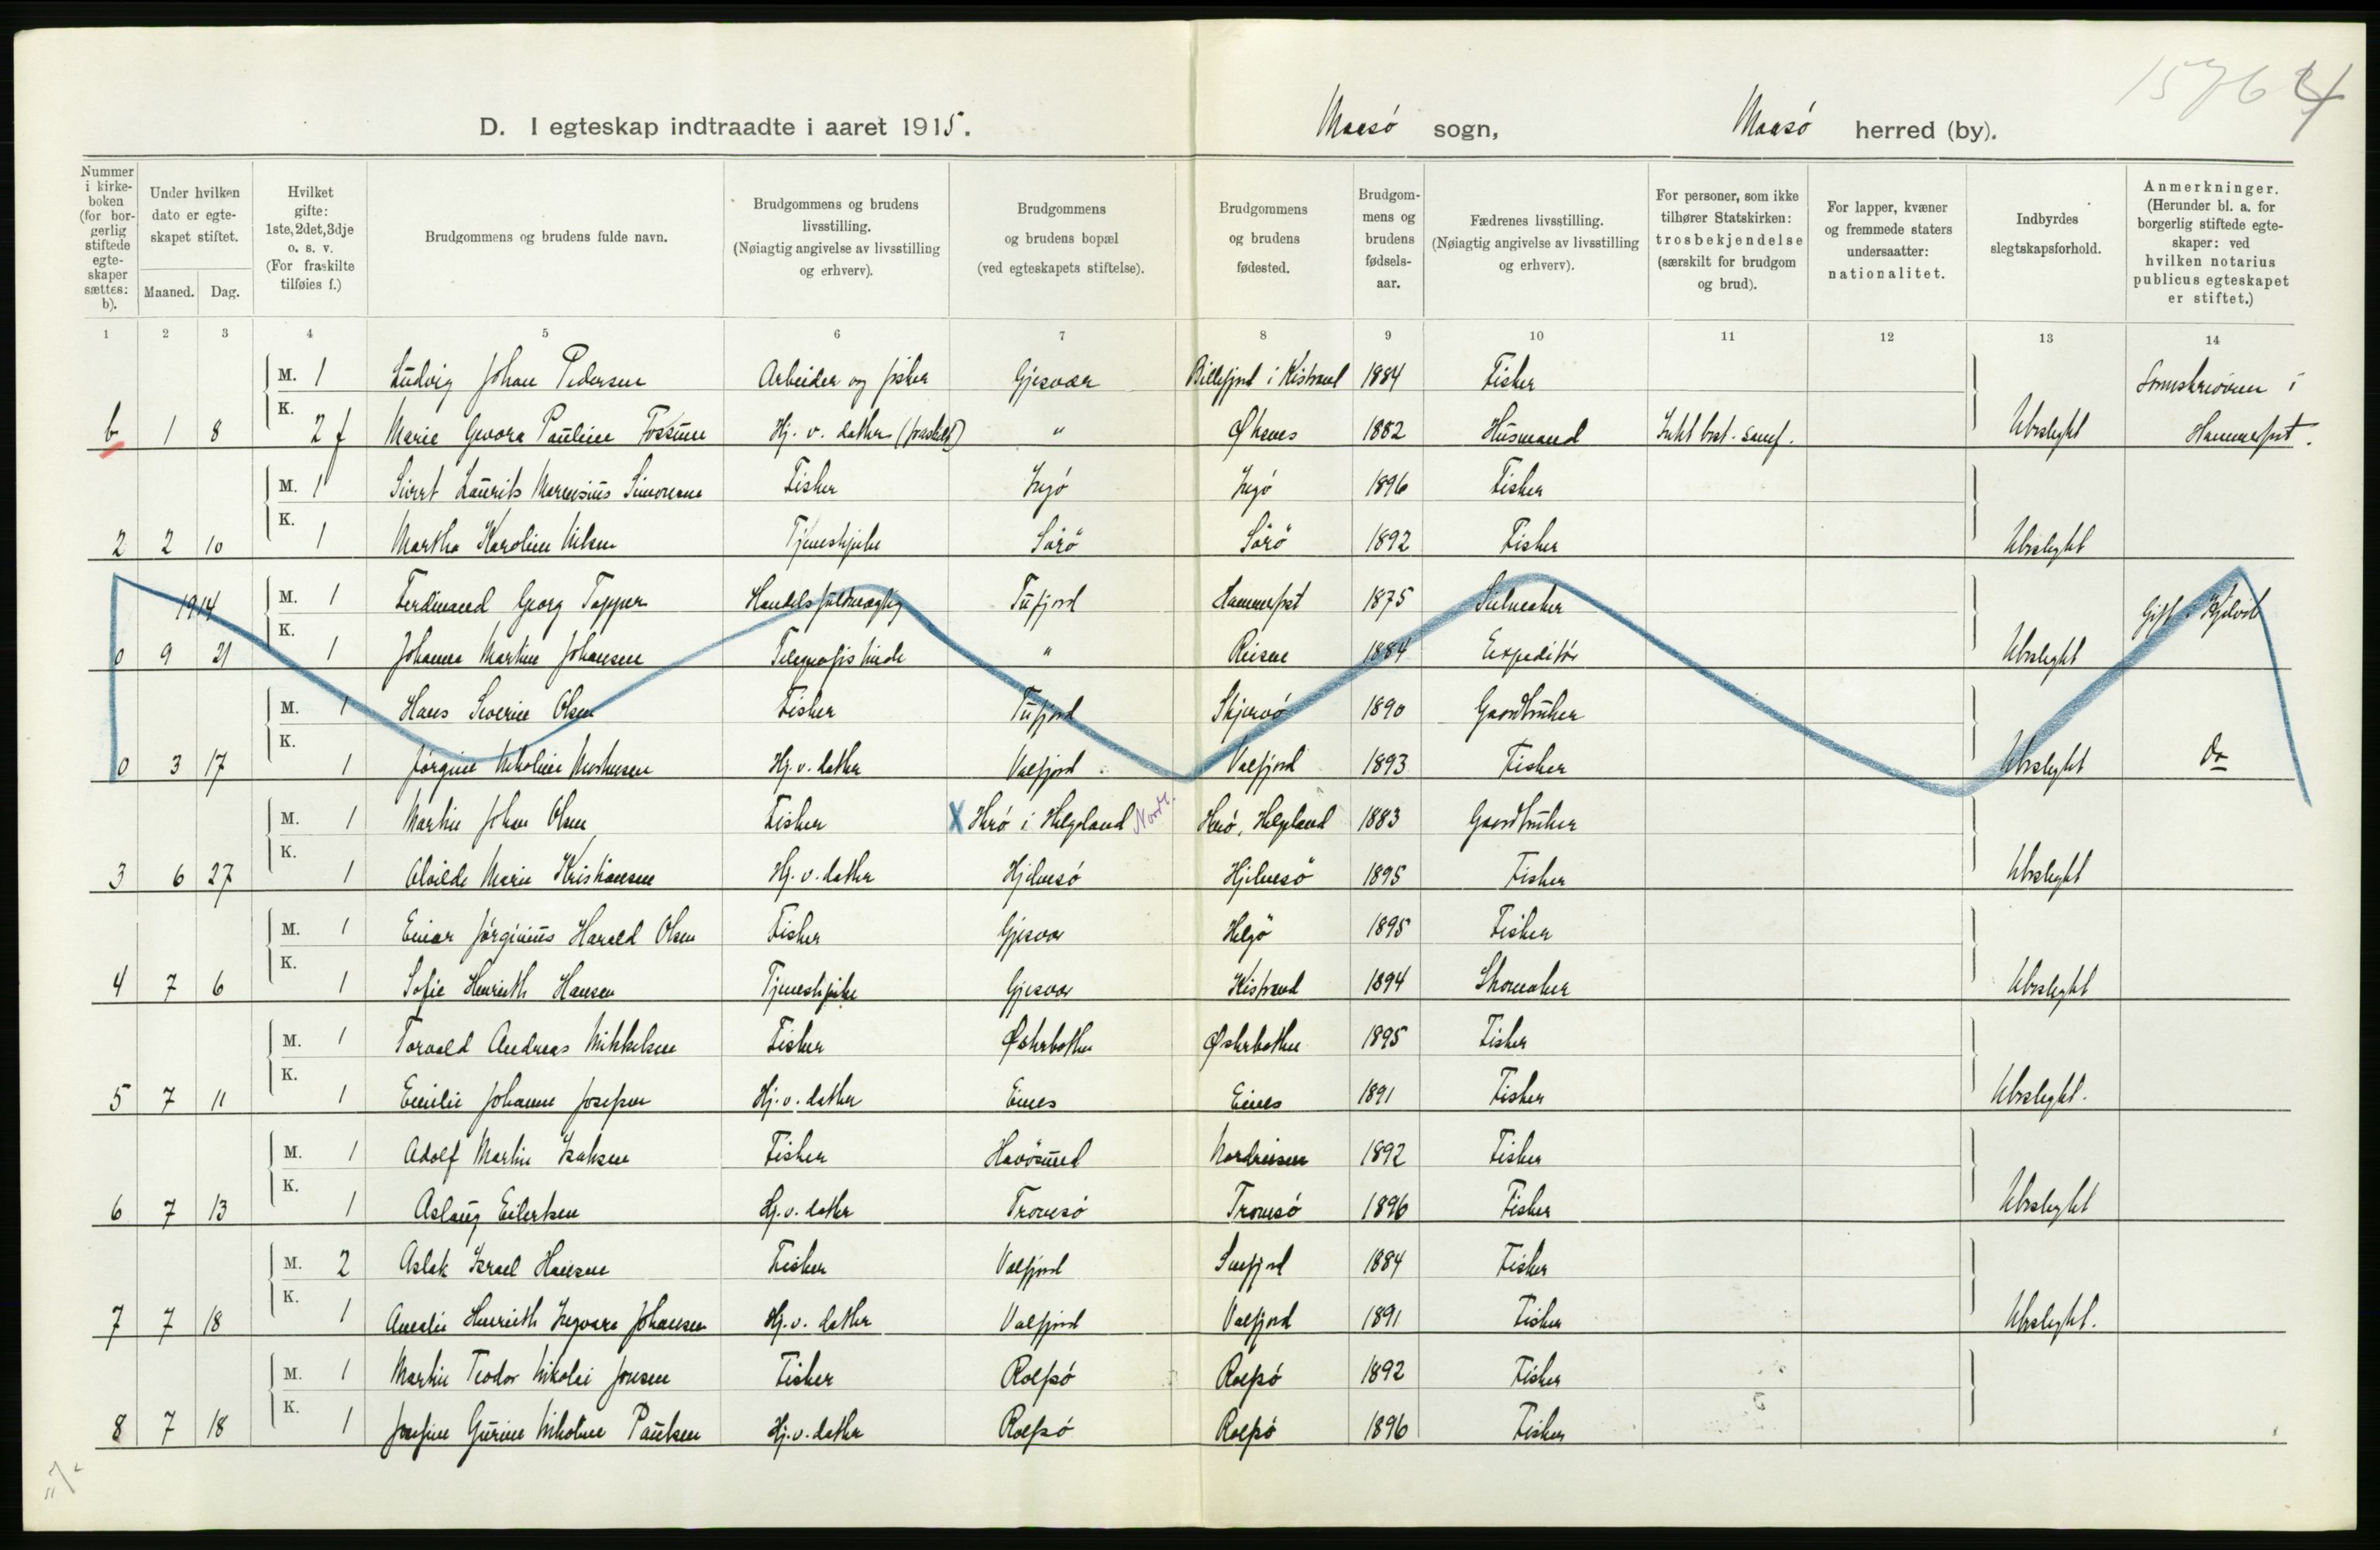 15764
D. I egteskap indtraadte i aaret 1915. Maasö sogn, Maasö herred (by).
Nummer i kirkeboken (for borgerlig stiftede egteskaper sættes: b).
Under hvilken dato er egteskapet stiftet.
Maaned. Dag.
Hvilket gifte: 1ste, 2det, 3dje o. s. v. (For fraskilte tilføies f.)
Brudgommens og brudens fulde navn.
Brudgommens og brudens livsstilling. (Nøiagtig angivelse av livsstilling og erhverv).
Brudgommens og brudens bopæl (ved egteskapets stiftelse).
Brudgommens og brudens fødested.
Brudgommens og brudens fødselsaar.
Fædrenes livsstilling. (Nøiagtig angivelse av livsstilling og erhverv).
For personer, som ikke tilhører Statskirken: trosbekjendelse (særskilt for brudgom og brud).
For lapper, kvæner og fremmede staters undersaatter: nationalitet.
Indbyrdes slegtskapsforhold.
Anmerkninger. (Herunder bl. a. for borgerlig stiftede egteskaper: ved hvilken notarius publicus egteskapet er stiftet.)
1 2 3 4 5 6 7 8 9 10 11 12 13 14
M. 1 Ludvig Johan Pedersen Arbeider og fisker Gjesvær Billefjord i Kistrand 1884 Fisker Sorenskriveren i
b 1 8 K. 2 f Marie Gevora Pauline Fossum Hj. v. datter (fraskilt) " Øksnes 1882 Husmand Ubeslegtet Hammerfest.
M. 1 Sivert Laurits Marensius Simonsen Fisker Ingö Ingö 1896 Fisker
2 2 10 K. 1 Martha Karoline Nilsen Tjenestepike Sörö Sörö 1892 Fisker Ubeslegtet
1914 M. 1 Ferdinand Georg Tapper Handelsfuldmægtig Tufjord Hammerfest 1875 Gift i Hjelvik
0 9 21 K. 1 Johanna Martine Johansen Telegrafistinde " Reisen 1884 Expeditör Ubeslegtet
M. 1 Hans Severin Olsen Fisker Tufjord Skjervö 1890 Gaardbruker
0 3 17 K. 1 Jörgine Nikoline Hj. v. datter Valfjord Valfjord 1893 Fisker Ubeslegtet Do
M. 1 Martin Johan Olsen Fisker X Herö i Helgeland Nordl. Herö, Helgeland 1883 Gaardbruker
3 6 27 K. 1 Alvilde Marie Kristiansen Hj. v. datter Hjelmsö Hjelmsö 1895 Fisker Ubeslegtet
M. 1 Einar Jörginius Harald Olsen Fisker Gjesvær Helgö 1895 Fisker
4 7 6 K. 1 Sofie Henriette Hansen Tjenestepike Gjesvær Kistrand 1894 Skomaker Ubeslegtet
M. 1 Torvald Andreas Mikkelsen Fisker Østerbotten Østerbotten 1895 Fisker
5 7 11 K. 1 Emilie Johanne Josefsen Hj. v. datter Eines Eines 1891 Fisker Ubeslegtet.
M. 1 Adolf Martin Isaksen Fisker Havösund Nordreisen 1892 Fisker
6 7 13 K. 1 Aslaug Eilertsen Hj. v. datter Tromsö Tromsö 1896 Fisker Ubeslegtet
M. 2 Aslak Israel Hansen Fisker Valfjord Snefjord 1884 Fisker
7 7 18 K. 1 Amalie Henriette Ingvara Johansen Hj. v. datter Valfjord Valfjord 1891 Fisker Ubeslegtet.
M. 1 Martin Teodor Nikolai Jensen Fisker Rolfsö Rolfsö 1892 Fisker
8 7 18 K. 1 Josefine Gurine Nikoline Paulsen Hj. v. datter Rolfsö Rolfsö 1896 Fisker